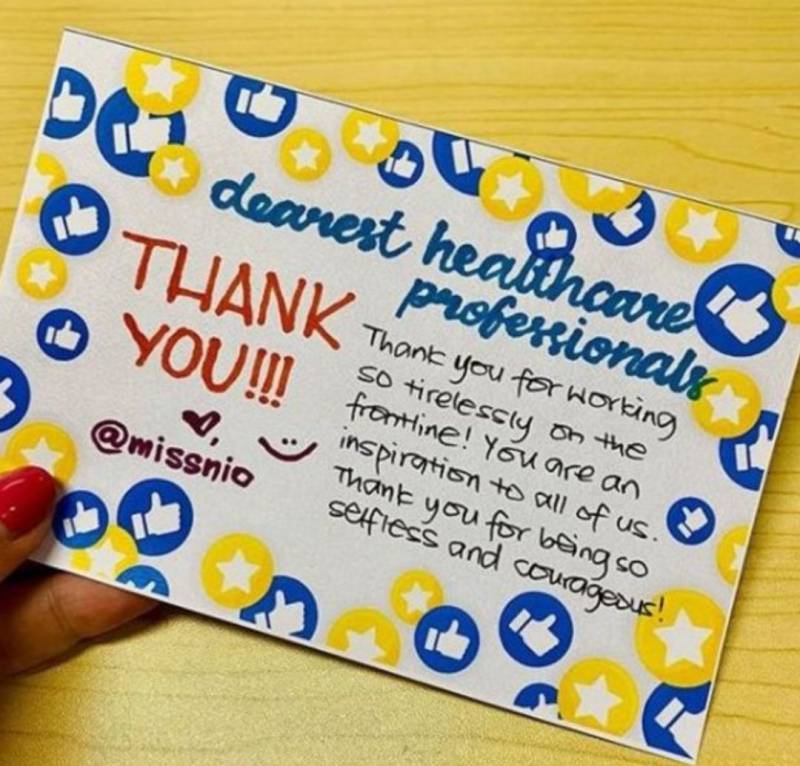 dearest healthcare
professionals
THANK
YOU!!!
@missnio
Thank you for working
so tirelessly on the
frontline! You are an
inspiration to all of us.
Thank you for being so
selfless and courageous!